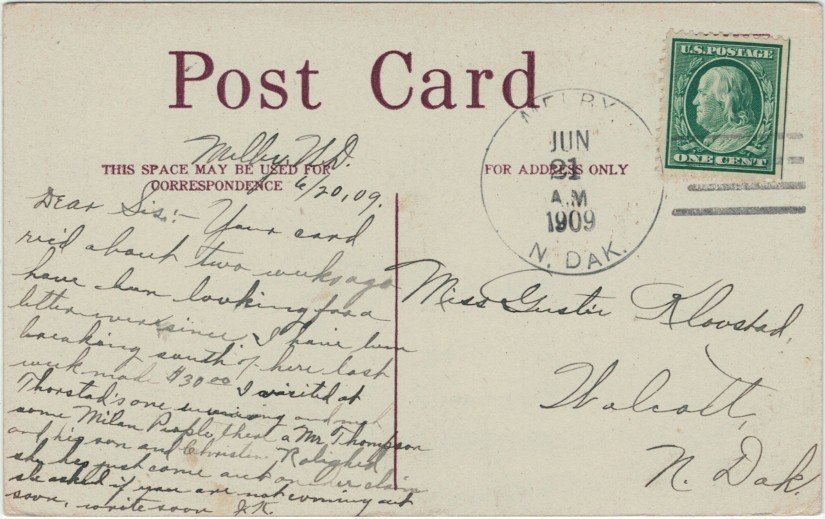 Post Card
U.S. POSTAGE
ONE CENT
MELBY
JUN
21
A.M
1909
N. DAK.
THIS SPACE MAY BE USED FOR
CORRESPONDENCE
FOR ADDRESS ONLY
Melby N.D.
6/20,09.
Dear Sis:- Your card
rec'd about two weeks ago
have been looking for a
letter ever since. I have been
breaking south of here last
week made $30.00 I visited at
Thorstad's one evening and
some Milan People there a Mr. Thompson
and his son and
she has just come out on her claim
she asked if you are not coming out
soon, write soon
Miss Gustie Klovstad,
Walcott,
N. Dak.